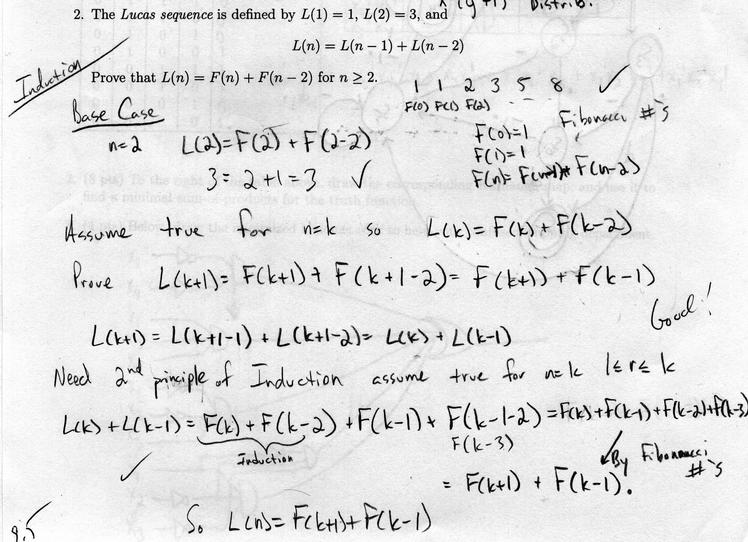 x (y + 1) Distrib.
2. The Lucas sequence is defined by L(1) = 1, L(2) = 3, and
L(n) = L(n − 1) + L(n − 2)
Induction
Prove that L(n) = F(n) + F(n − 2) for n ≥ 2.
1 1 2 3 5 8 ✓
F(0) F(1) F(2) ...
Base Case
Fibonacci #'s
F(0)=1
F(1)=1
F(n)= F(n-1)+ F(n-2)
n=2 L(2)=F(2) + F(2-2)
3= 2+1=3 ✓
Assume true for n=k so L(k)= F(k) + F(k-2)
Prove L(k+1)= F(k+1) + F(k+1-2)= F(k+1) + F(k-1)
Good!
L(k+1) = L(k+1-1) + L(k+1-2)= L(k) + L(k-1)
Need 2nd principle of Induction assume true for n=k 1≤r≤k
L(k) + L(k-1) = F(k) + F(k-2) + F(k-1) + F(k-1-2) = F(k)+F(k-1)+F(k-2)+F(k-3)
Induction
F(k-3)
✓ By Fibonnacci #'s
✓
= F(k+1) + F(k-1).
So L(n)= F(k+1)+F(k-1)
9.5